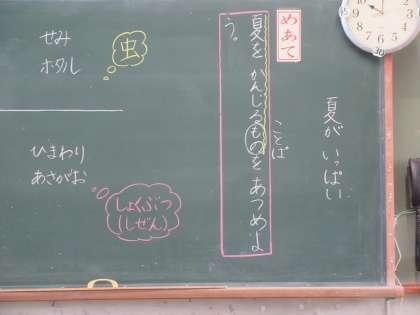 夏が いっぱい
めあて
夏を かんじるものを あつめよ
う。
ことば
せみ
ホタル
虫
ひまわり
あさがお
しょくぶつ
(しぜん)